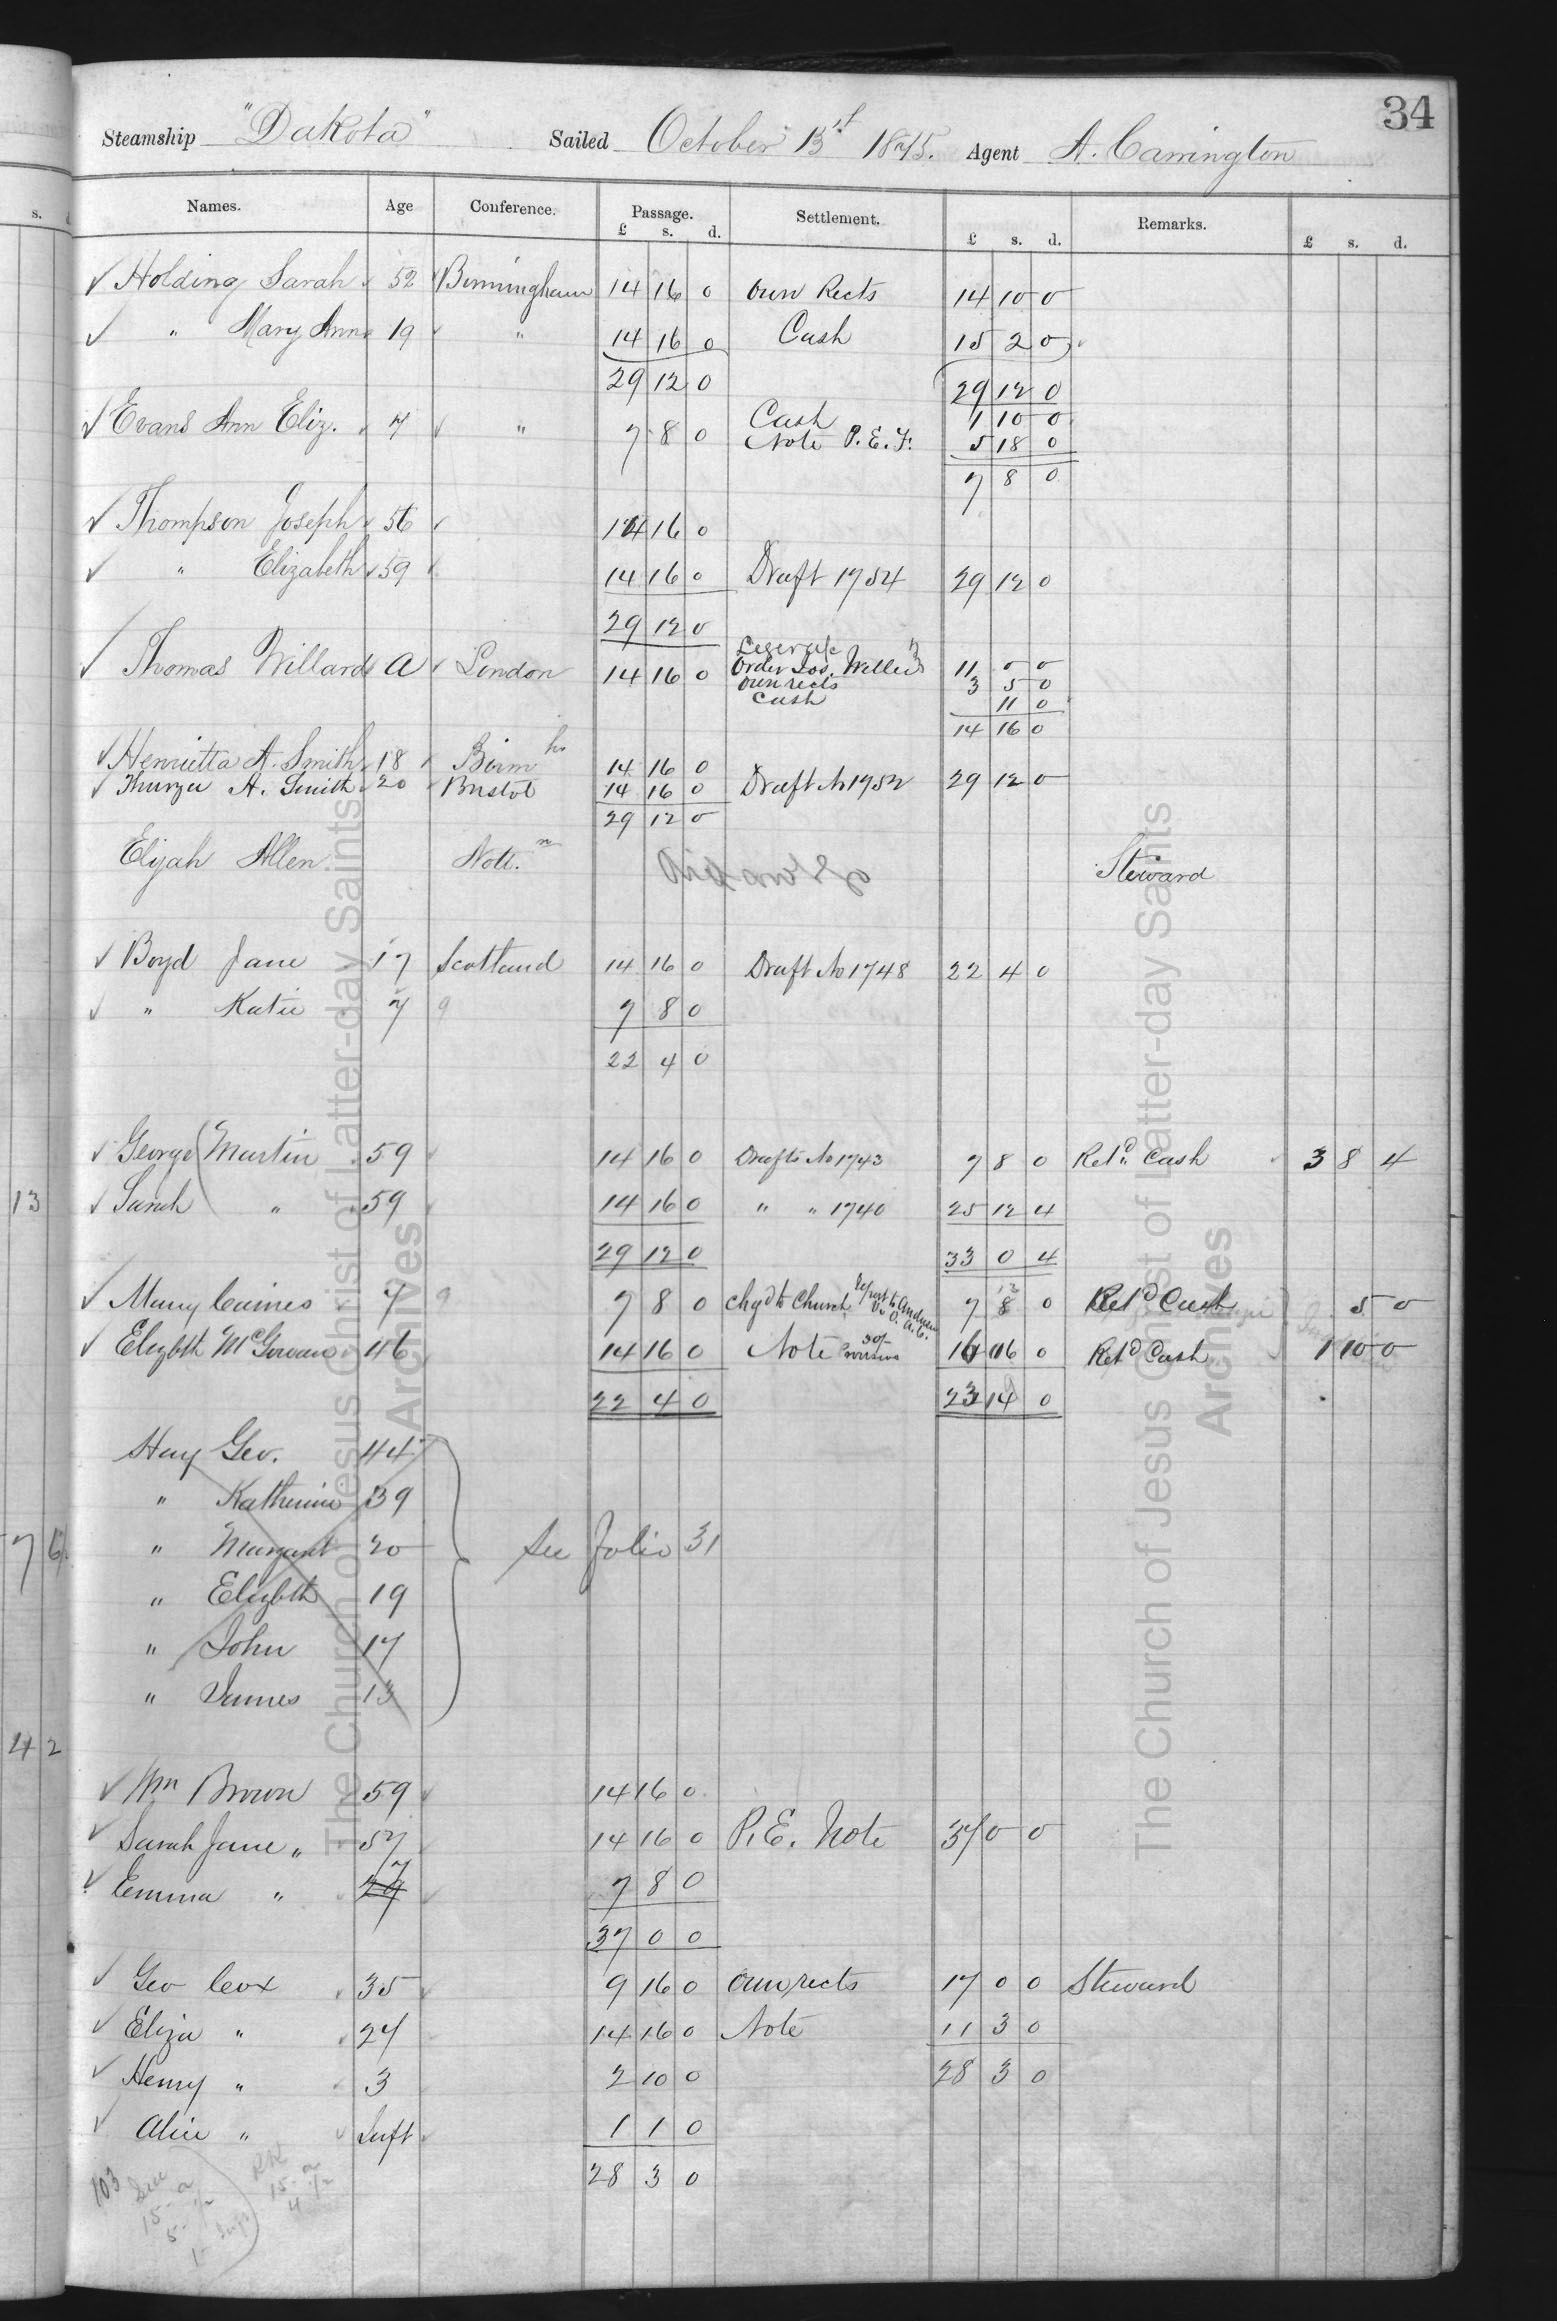 34
Steamship "Dakota" Sailed October 13 1875. Agent A. Carrington
Names. Age Conference. Passage. Settlement. Remarks.
£ s. d. £ s. d. £ s. d.
s.
✓ Holding Sarah 52 Birmingham 14 16 0 Own Rects 14 10 0
✓ " Mary Ann 19 " 14 16 0 Cash 15 2 0
29 12 0 29 12 0
✓ Evans Ann Eliz. 7 " 7 8 0 Cash 1 10 0
Note P.E.F. 5 18 0
7 8 0
✓ Thompson Joseph 56 14 16 0
✓ " Elizabeth 59 14 16 0 Draft 1754 29 12 0
29 12 0
✓ Thomas Willard A London 14 16 0 Order Jos. Willard 11 0 0
Own rects 3 5 0
Cash 11 0
14 16 0
✓ Henrietta A. Smith 18 Birm hm 14 16 0
✓ Thurza A. Smith 20 Bristol 14 16 0 Draft No 1752 29 12 0
29 12 0
Elijah Allen Nott. m Steward
✓ Boyd Jane 17 Scotland 14 16 0 Draft No 1748 22 4 0
✓ " Katie 7 7 8 0
22 4 0
✓ George Martin 59 14 16 0 Drafts No 1743 7 8 0 Retd. Cash 3 8 4
13
✓ Sarah " 59 14 16 0 " " 1740 25 12 4
29 12 0 33 0 4
✓ Mary Caines 7 7 8 0 Chgd to Church 7 8 0 Retd Cash 5 0
✓ Elizbth McGowan 46 14 16 0 Note 16 16 0 Retd Cash 1 10 0
22 4 0 23 14 0
Hay Geo. 44
" Katherine 39
" Margart 20 See folio 31
7 6
" Elizbth 19
" John 17
" James 13
4 2
✓ Wm Brown 59 14 16 0
✓ Sarah Jane " 57 14 16 0 P.E. Note 37 0 0
✓ Emma " 7 7 8 0
37 0 0
✓ Geo Cox 35 9 16 0 Own rects 17 0 0 Steward
✓ Eliza " 27 14 16 0 Note 11 3 0
✓ Henry " 3 2 10 0 28 3 0
✓ Alice " Inft 1 1 0
28 3 0
103
15 a
5 ½
1
RR
15 a
4 ½
The Church of Jesus Christ of Latter-day Saints
Archives
The Church of Jesus Christ of Latter-day Saints
Archives